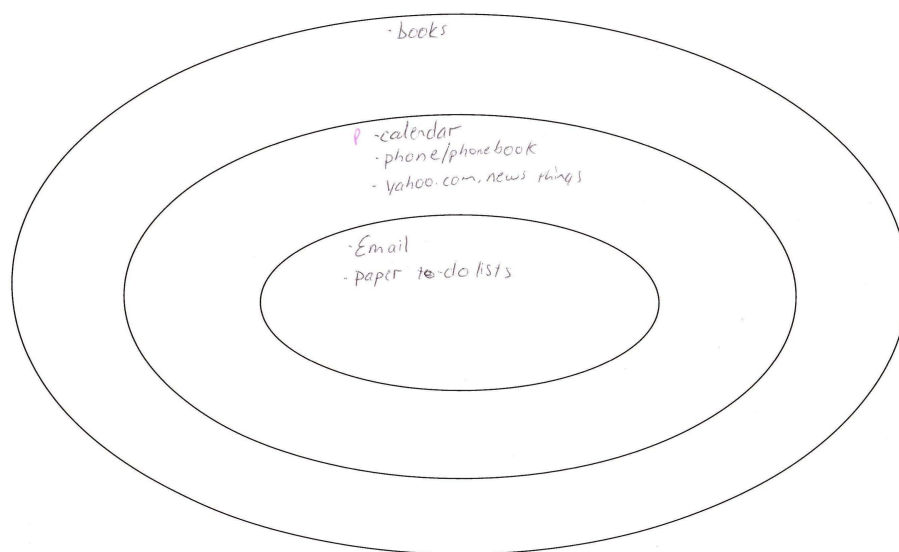 - books
P - calendar
- phone/phonebook
- yahoo.com, news things
- Email
- paper to-do lists